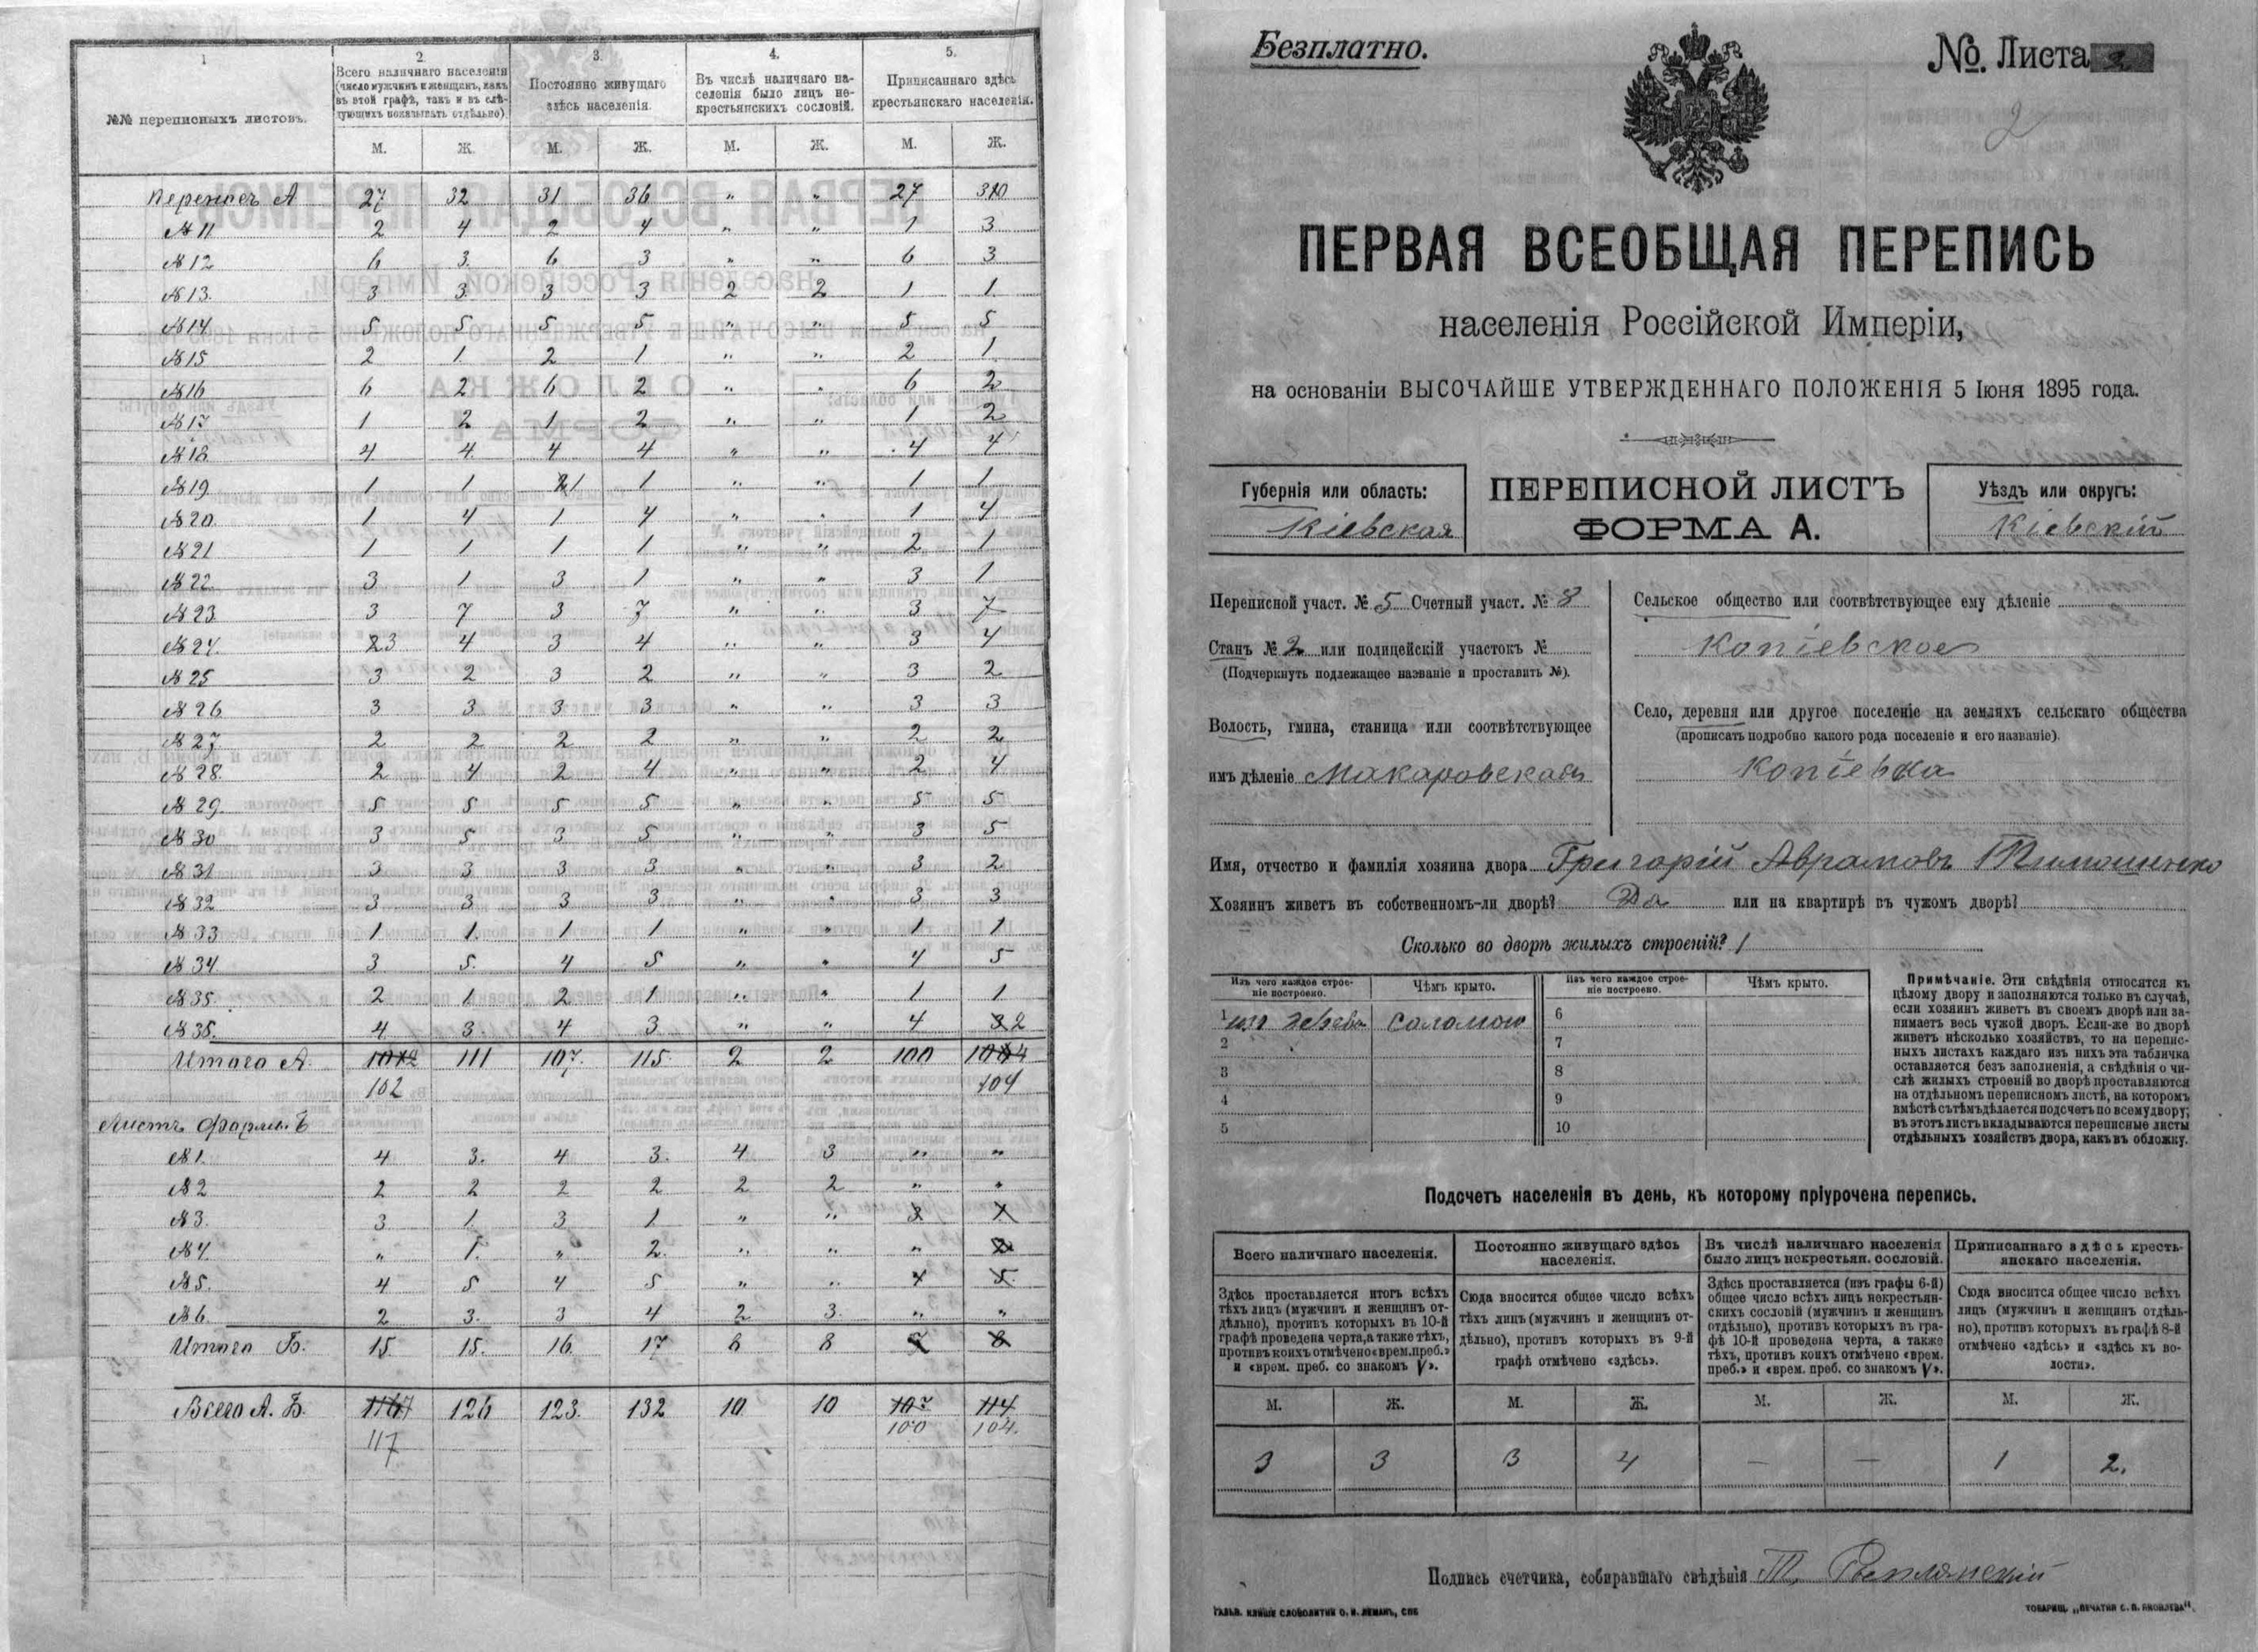 1
2.
3.
4.
5.
№№ переписныхъ листовъ.
Всего наличнаго населенія
(число мужчинъ и женщинъ, какъ
въ этой графѣ, такъ и въ слѣ-
дующихъ показывать отдѣльно)
Постоянно живущаго
здѣсь населенія.
Въ числѣ наличнаго на-
селенія было лицъ не-
крестьянскихъ сословій.
Приписаннаго здѣсь
крестьянскаго населенія.
М. Ж. М. Ж. М. Ж. М. Ж.
А 27 32 31 36 " " 27
№ 11 2 4 2 4 " " 1 3
№ 12 6 3 6 3 " " 6 3
№ 13. 3 3 3 3 2 2 1 1
№ 14. 5 5 5 5 " " 5 5
№ 15 2 1 2 1 " " 2 1
№ 16 6 2 6 2 " " 6 2
№ 17 1 2 1 2 " " 1 2
№ 18 4 4 4 4 " " 4 4
№ 19 1 1 1 " " 1 1
№ 20 1 4 1 4 " " 1 4
№ 21 1 1 1 1 " " 2 1
№ 22 3 1 3 1 " " 3 1
№ 23 3 7 3 7 " " 3 7
№ 24. 23 4 3 4 " " 3 4
№ 25 3 2 3 2 " " 3 2
№ 26 3 3 3 3 " " 3 3
№ 27 2 2 2 2 " " 2 2
№ 28 2 4 2 4 " " 2 4
№ 29 5 5 5 5 " " 5 5
№ 30 3 5 3 5 " " 3 5
№ 31 3 3 3 3 " " 3 2
№ 32 3 3 3 3 " " 3 3
№ 33 1 1 1 1 " " 1 1
№ 34 3 5 4 5 " " 4 5
№ 35 2 1 2 1 " " 1 1
№ 35. 4 3 4 3 " " 4 2
Итого А. 111 107. 115. 2 2 100
102 104
Листъ формы Б
№ 1. 4 3. 4 3. 4 3 " "
№ 2 2 2 2 2 2 2 " "
№ 3. 3 1 3 1 " "
№ 4. " 1. " 2. " " "
№ 5. 4 5 4 5 " "
№ 6. 2 3. 3 4 2 3. " "
Итого Б. 15 15. 16. 17 8 8
Всего А. Б. 126 123. 132 10 10 107 114
117 100 104.
Безплатно.
№. Листа 2
2
ПЕРВАЯ ВСЕОБЩАЯ ПЕРЕПИСЬ
населенія Россійской Имперіи,
на основаніи ВЫСОЧАЙШЕ УТВЕРЖДЕННАГО ПОЛОЖЕНІЯ 5 Іюня 1895 года.
Губернія или область:
Кіевская
ПЕРЕПИСНОЙ ЛИСТЪ
ФОРМА А.
Уѣздъ или округъ:
Кіевскій
Переписной участ. № 5 Счетный участ. № 8
Станъ № 2 или полицейскій участокъ №
(Подчеркнуть подлежащее названіе и проставить №).
Волость, гмина, станица или соотвѣтствующее
имъ дѣленіе Макаровская
Сельское общество или соотвѣтствующее ему дѣленіе
Копіевское
Село, деревня или другое поселеніе на земляхъ сельскаго общества
(прописать подробно какого рода поселеніе и его названіе).
Копіевка
Имя, отчество и фамилія хозяина двора Григорій Аврамовъ Тимошенко
Хозяинъ живетъ въ собственномъ-ли дворѣ? Да или на квартирѣ въ чужомъ дворѣ?
Сколько во дворѣ жилыхъ строеній? 1
Изъ чего каждое строе-
ніе построено.
Чѣмъ крыто.
Изъ чего каждое строе-
ніе построено.
Чѣмъ крыто.
1 изъ дерева соломою 6
2 7
3 8
4 9
5 10
Примѣчаніе. Эти свѣдѣнія относятся къ
цѣлому двору и заполняются только въ случаѣ,
если хозяинъ живетъ въ своемъ дворѣ или за-
нимаетъ весь чужой дворъ. Если-же во дворѣ
живетъ нѣсколько хозяйствъ, то на перепис-
ныхъ листахъ каждаго изъ нихъ эта табличка
оставляется безъ заполненія, а свѣдѣнія о чи-
слѣ жилыхъ строеній во дворѣ проставляются
на отдѣльномъ переписномъ листѣ, на которомъ
вмѣстѣ съ тѣмъ дѣлается подсчетъ по всему двору;
въ этотъ листъ вкладываются переписные листы
отдѣльныхъ хозяйствъ двора, какъ въ обложку.
Подсчетъ населенія въ день, къ которому пріурочена перепись.
Всего наличнаго населенія.
Постоянно живущаго здѣсь
населенія.
Въ числѣ наличнаго населенія
было лицъ некрестьян. сословій.
Приписаннаго здѣсь кресть-
янскаго населенія.
Здѣсь проставляется итогъ всѣхъ
тѣхъ лицъ (мужчинъ и женщинъ от-
дѣльно), противъ которыхъ въ 10-й
графѣ проведена черта, а также тѣхъ,
противъ коихъ отмѣчено «врем. преб.»
и «врем. преб. со знакомъ V».
Сюда вносится общее число всѣхъ
тѣхъ лицъ (мужчинъ и женщинъ от-
дѣльно), противъ которыхъ въ 9-й
графѣ отмѣчено «здѣсь».
Здѣсь проставляется (изъ графы 6-й)
общее число всѣхъ лицъ некрестьян-
скихъ сословій (мужчинъ и женщинъ
отдѣльно), противъ которыхъ въ гра-
фѣ 10-й проведена черта, а также
тѣхъ, противъ коихъ отмѣчено «врем.
преб.» и «врем. преб. со знакомъ V».
Сюда вносится общее число всѣхъ
лицъ (мужчинъ и женщинъ отдѣль-
но), противъ которыхъ въ графѣ 8-й
отмѣчено «здѣсь» и «здѣсь къ во-
лости».
М. Ж. М. Ж. М. Ж. М. Ж.
3 3 3 4 — — 1 2.
Подпись счетчика, собиравшаго свѣдѣнія Т.
ГАЛЬВ. КЛИШЕ СЛОВОЛИТНИ О. И. ЛЕМАНЪ, СПБ
ТОВАРИЩ. „ПЕЧАТНЯ С. П. ЯКОВЛЕВА".